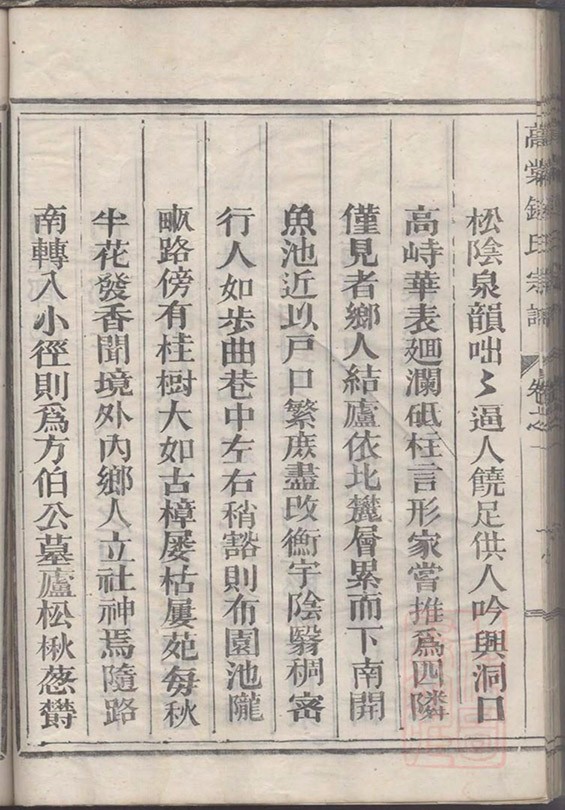 松陰泉韻咄〻逼人饒足供人吟興洞口
高峙華表廻瀾砥柱言形家嘗推爲四隣
僅見者鄉人結廬依北麓層累而下南開
魚池近以戸口繁庶盡改衡宇陰翳稠密
行人如歩曲巷中左右稍豁則布園池隴
畝路傍有桂樹大如古樟屡枯屢苑每秋
半花發香聞境外内鄉人立社神焉隨路
南轉入小徑則爲方伯公墓廬松楸葱欝